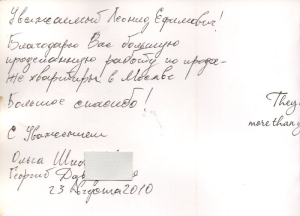 Уважаемый Леонид Ефимович!
Благодарю Вас большую
проделанную работу по прода-
же квартиры в Москве
Большое спасибо!
С Уважением
Ольга
Георгий
23 августа 2010
They
more than